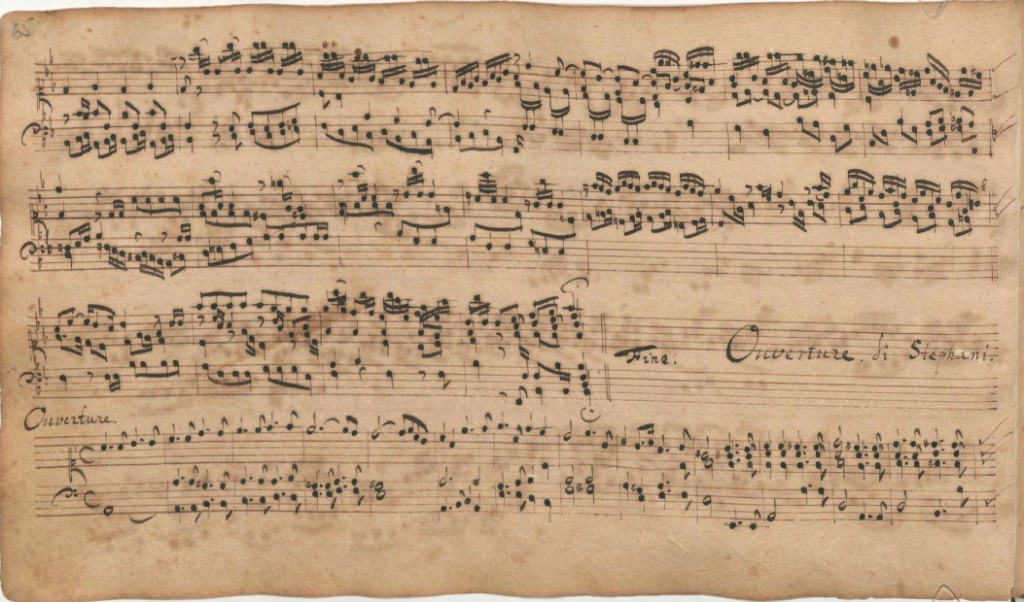 65
Fine.
Ouverture. di Stephani.
Ouverture.